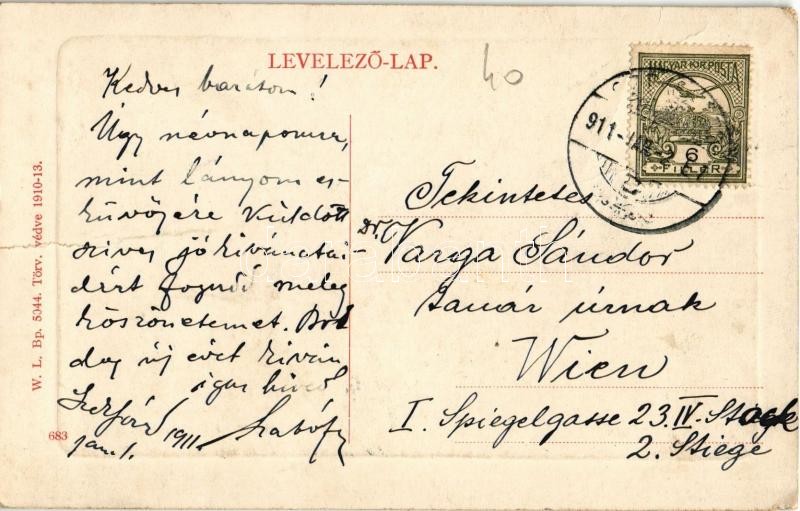 LEVELEZŐ-LAP.
40
MAGYAR KIR. POSTA
911
6
FILLÉR
Kedves barátom!
Úgy névnapomra,
mint lányom es-
küvőjére küldött
szives jókivánatai-
dért fogadd meleg
köszönetemet. Bol
dog új évet kiván
igaz hived
Szabó
1911
jan. 1.
Tekintetes
Dr. Varga Sándor
tanár úrnak
Wien
I. Spiegelgasse 23. IV. Stock
2. Stiege
W. L. Bp. 5044. Törv. védve 1910-13.
683